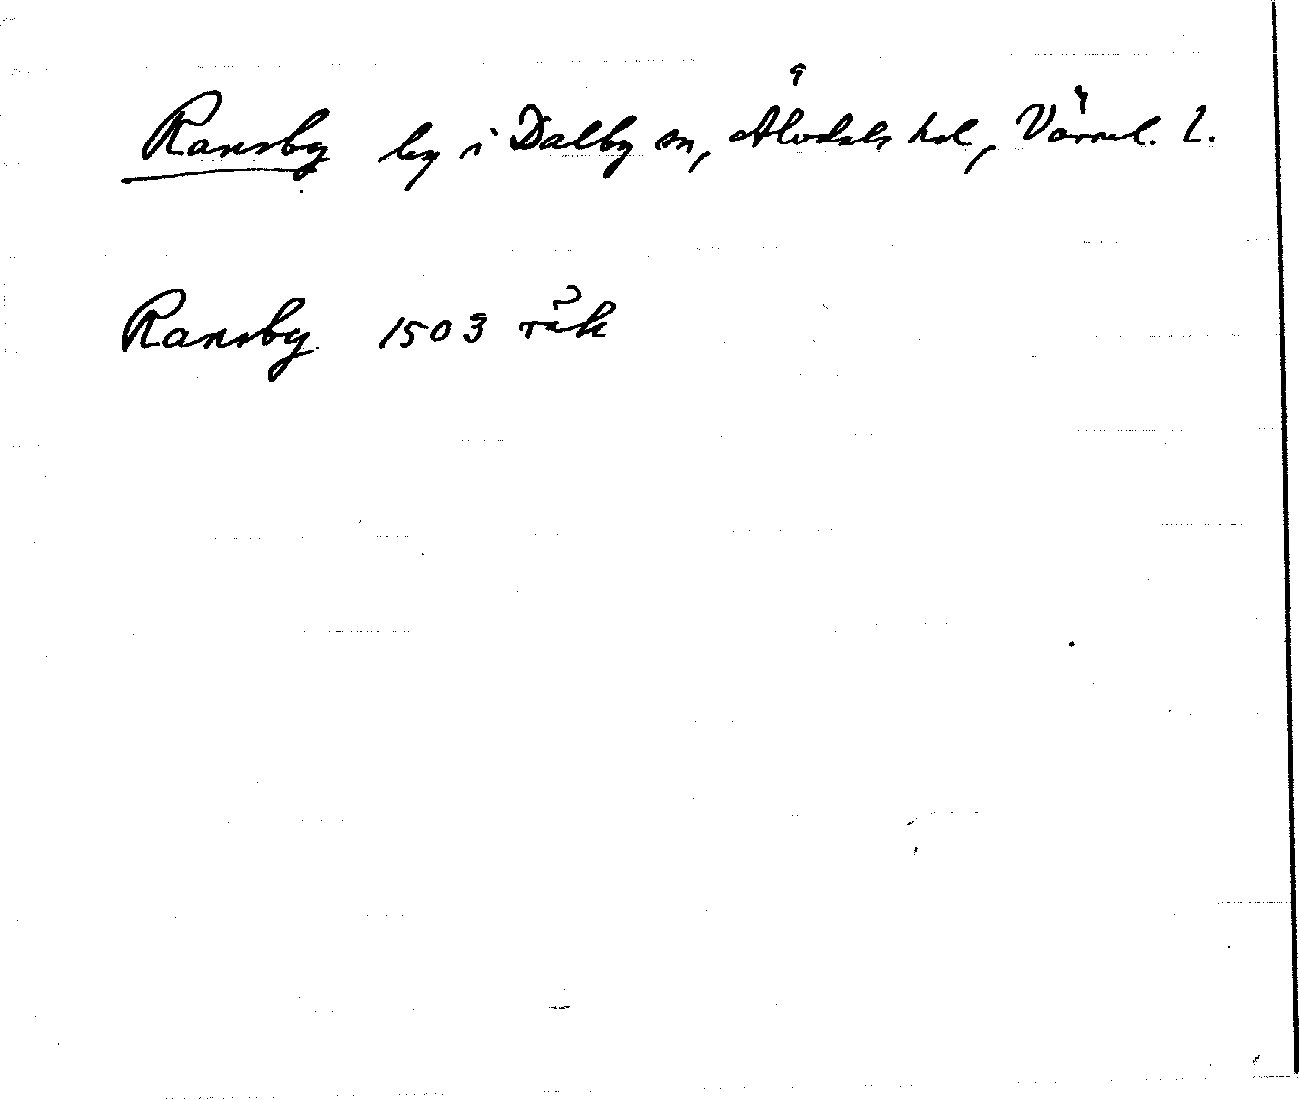 Ransby by i Dalby sn, Älvdals hd, Värml. l.
Ransby 1503 räk